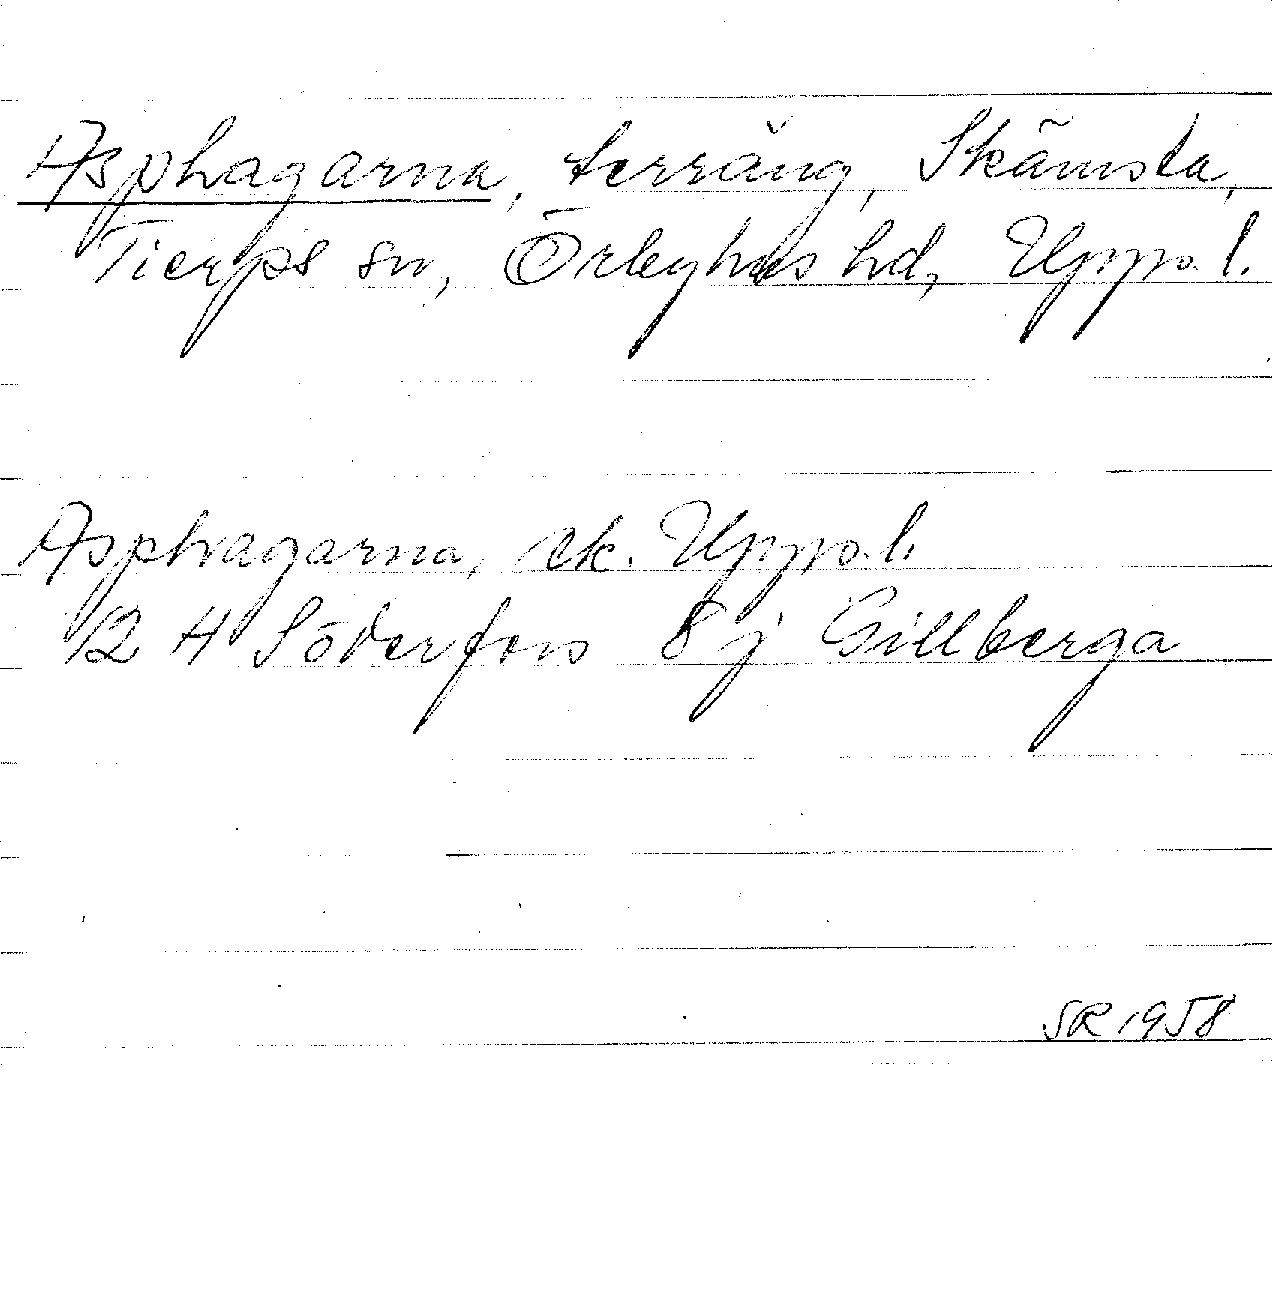 Asphagarna, terräng, Skämsta,
Tierps sn, Örbyhus hd, Upps. l.
Asphagarna, ek. Upps. l.
12 H Söderfors 8 j Gillberga
SR 1958